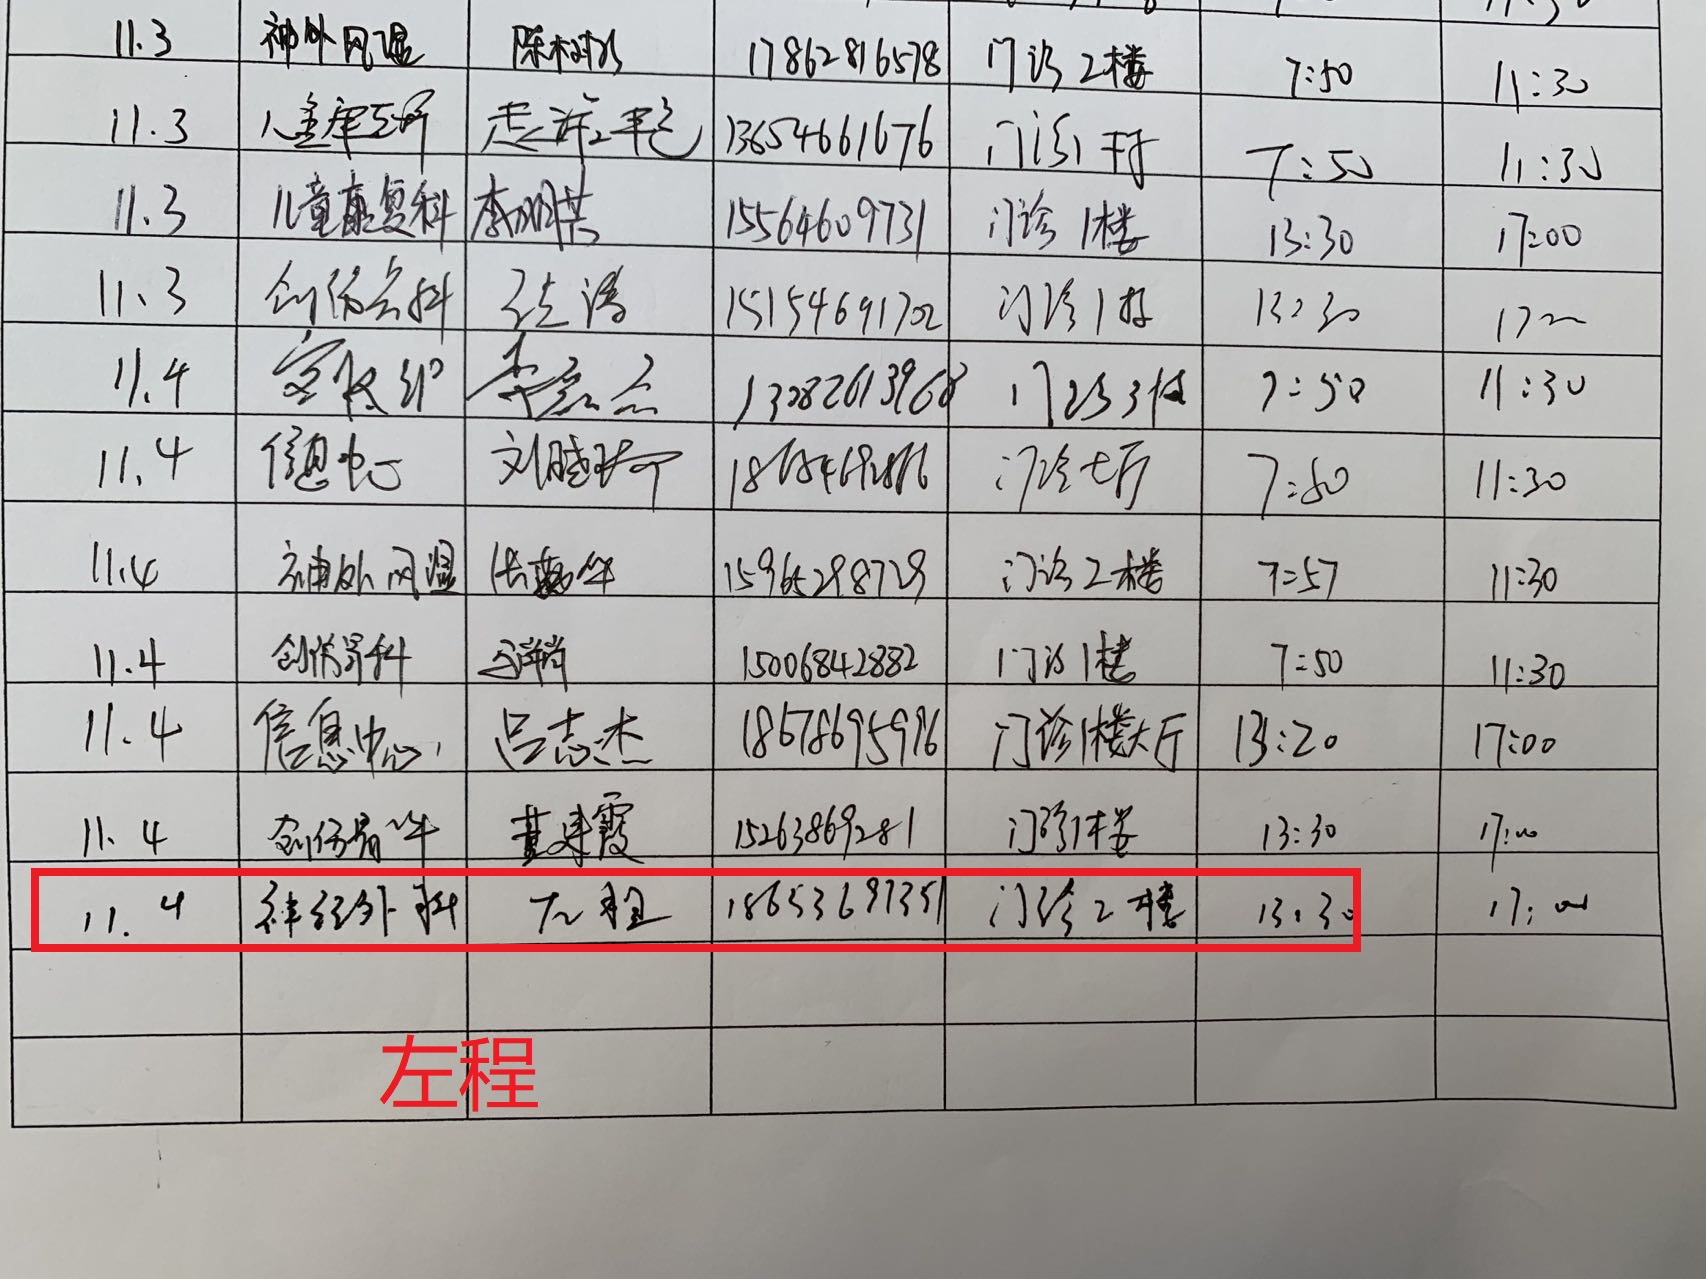 11.3 神外风湿 陈树 17862816578 门诊2楼 7:50 11:30
11.3 儿童康复科 13654661676 门诊1楼 7:50 11:30
11.3 儿童康复科 李明英 15564609731 门诊1楼 13:30 17:00
11.3 创伤骨科 涛 15154691702 门诊1楼 13:30 17:00
11.4 李 13282613968 门诊3楼 7:50 11:30
11.4 信息中心 刘晓 门诊大厅 7:50 11:30
11.4 神外风湿 15965298729 门诊2楼 7:57 11:30
11.4 创伤骨科 15006842882 门诊1楼 7:50 11:30
11.4 信息中心 吕志杰 18678695996 门诊1楼大厅 13:20 17:00
11.4 创伤骨科 董建霞 15263869281 门诊1楼 13:30 17:00
11.4 神经外科 左程 18653697351 门诊2楼 13:30 17:00
左程